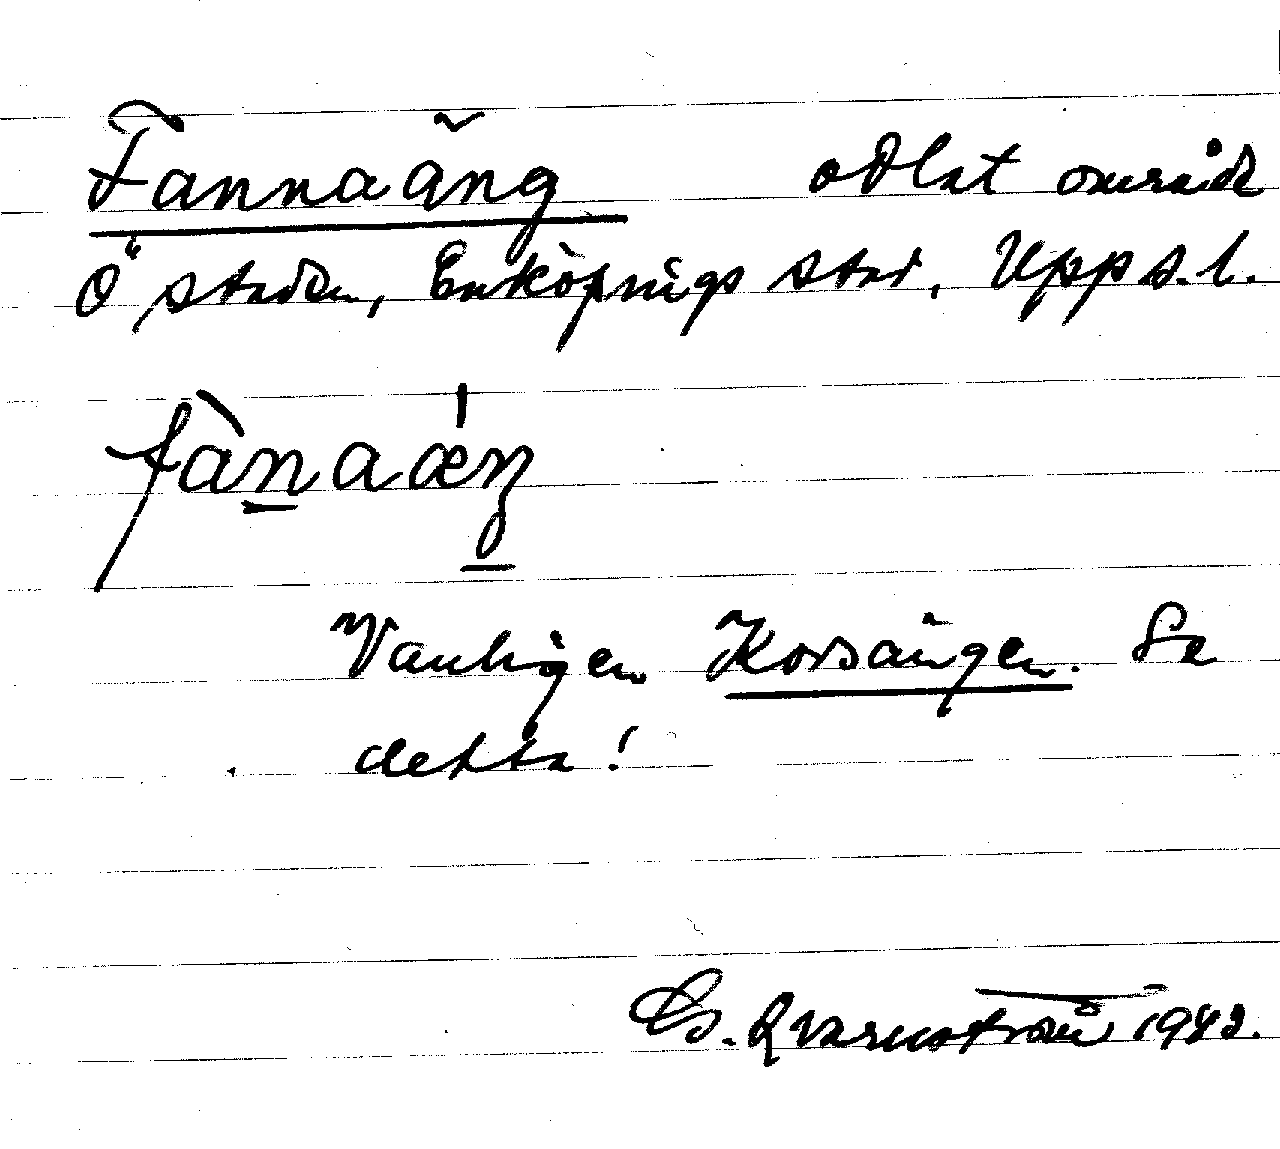 Fannaäng odlat område
Ö staden, Enköpings stad, Upps. l.
fànaǽŋ
Vanligen Korsängen. Se
detta!
Qvarnström 1942.